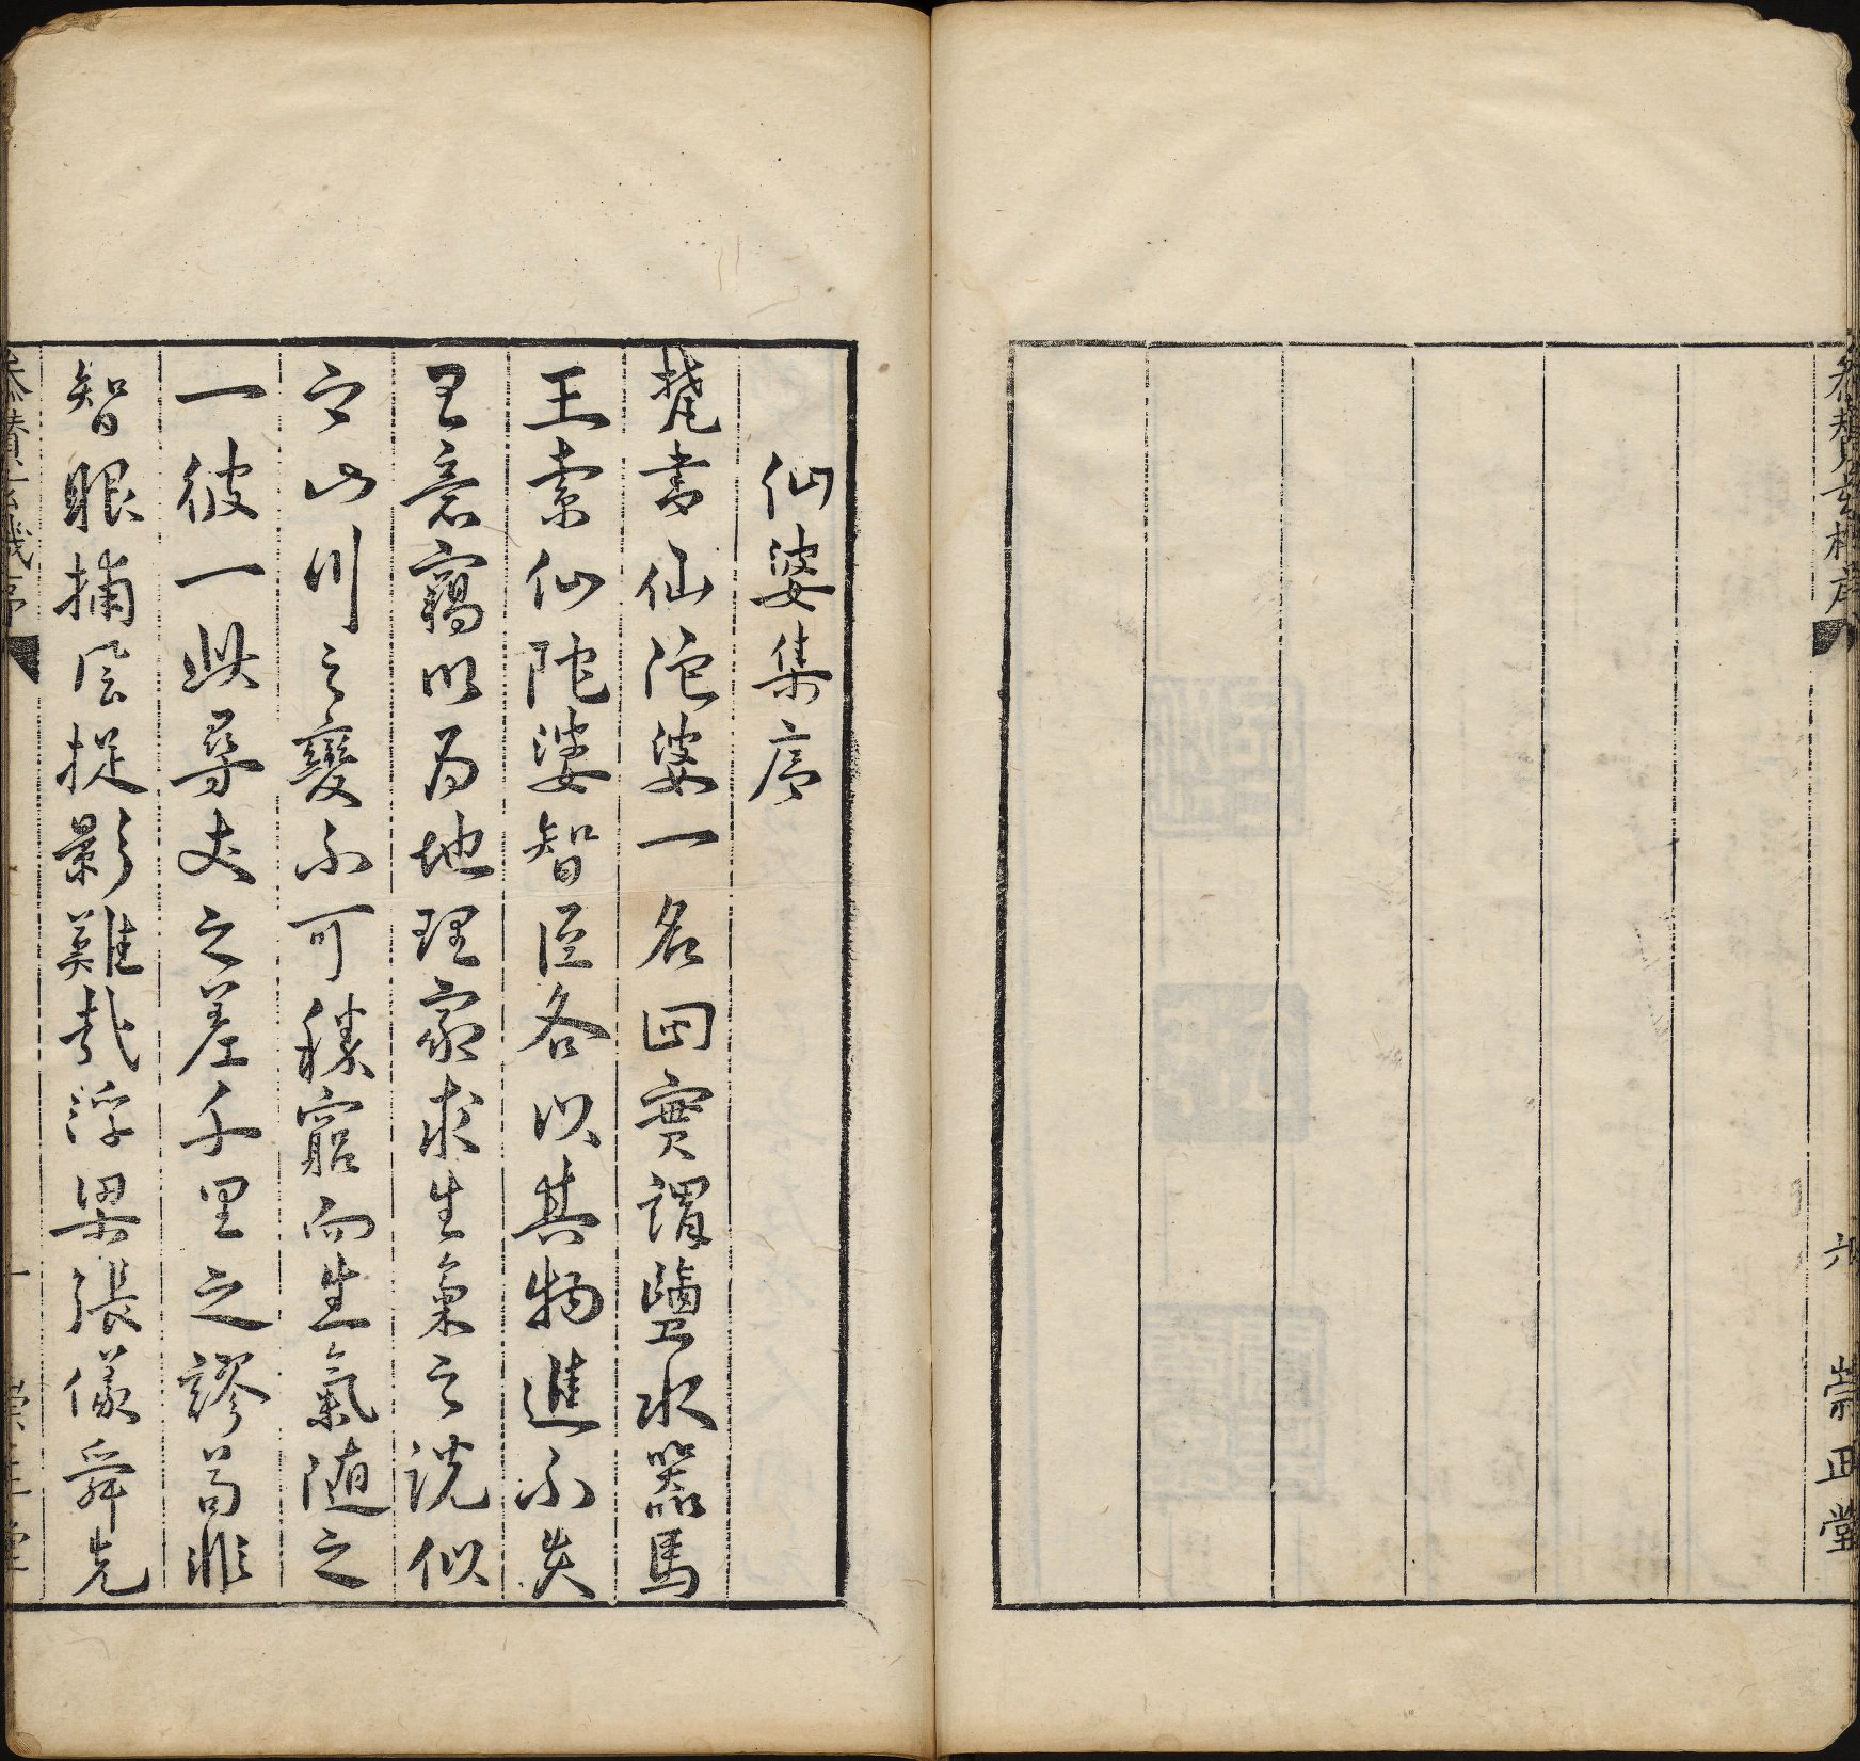 參贊玄機序
六
崇正堂
仙婆集序
梵書仙陀婆一名四實謂鹽水器馬
王索仙陀婆智臣各以其物進不失
王意竊以為地理家求生氣之說似
之山川之變不可殫窮而生氣隨之
一彼一此尋丈之差千里之謬苟非
智眼捕風捉影難哉浮梁張儀舜先
參贊玄機序
一
崇正堂